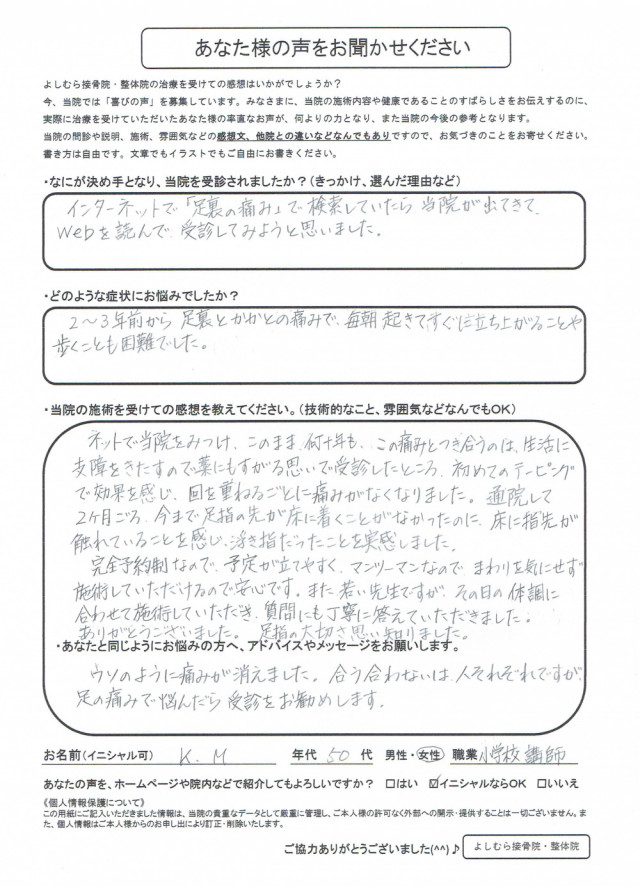 あなた様の声をお聞かせください
よしむら接骨院・整体院の治療を受けての感想はいかがでしょうか？
今、当院では「喜びの声」を募集しています。みなさまに、当院の施術内容や健康であることのすばらしさをお伝えするのに、
実際に治療を受けていただいたあなた様の率直なお声が、何よりの力となり、また当院の今後の参考となります。
当院の問診や説明、施術、雰囲気などの感想文、他院との違いなどなんでもありですので、お気づきのことをお寄せください。
書き方は自由です。文章でもイラストでもご自由にお書きください。
・なにが決め手となり、当院を受診されましたか？（きっかけ、選んだ理由など）
インターネットで「足裏の痛み」で検索していたら当院が出てきて、
Webを読んで、受診してみようと思いました。
・どのような症状にお悩みでしたか？
2〜3年前から足裏とかかとの痛みで、毎朝起きてすぐに立ち上がることや
歩くことも困難でした。
・当院の施術を受けての感想を教えてください。（技術的なこと、雰囲気などなんでもOK）
ネットで当院をみつけ、このまま何十年も、この痛みとつき合うのは、生活に
支障をきたすので藁にもすがる思いで受診したところ、初めてのテーピング
で効果を感じ、回を重ねるごとに痛みがなくなりました。通院して
2ヶ月ごろ、今まで足指の先が床に着くことがなかったのに、床に指先が
触れていることを感じ、浮き指だったことを実感しました。
完全予約制なので、予定が立てやすく、マンツーマンなので、まわりを気にせず
施術していただけるので安心です。また若い先生ですが、その日の体調に
合わせて施術していただき、質問にも丁寧に答えていただきました。
ありがとうございました。足指の大切さ思い知りました。
・あなたと同じようにお悩みの方へ、アドバイスやメッセージをお願いします。
ウソのように痛みが消えました。合う合わないは、人それぞれですが、
足の痛みで悩んだら受診をお勧めします。
お名前（イニシャル可） K.M 年代 50 代 男性・女性 職業 小学校講師
あなたの声を、ホームページや院内などで紹介してもよろしいですか？ □はい ☑イニシャルならOK □いいえ
《個人情報保護について》
この用紙にご記入いただきました情報は、当院の貴重なデータとして厳重に管理し、ご本人様の許可なく外部への開示・提供することは一切ございません。ま
た、個人情報はご本人様からのお申し出により訂正・削除いたします。
ご協力ありがとうございました(^^)♪ よしむら接骨院・整体院